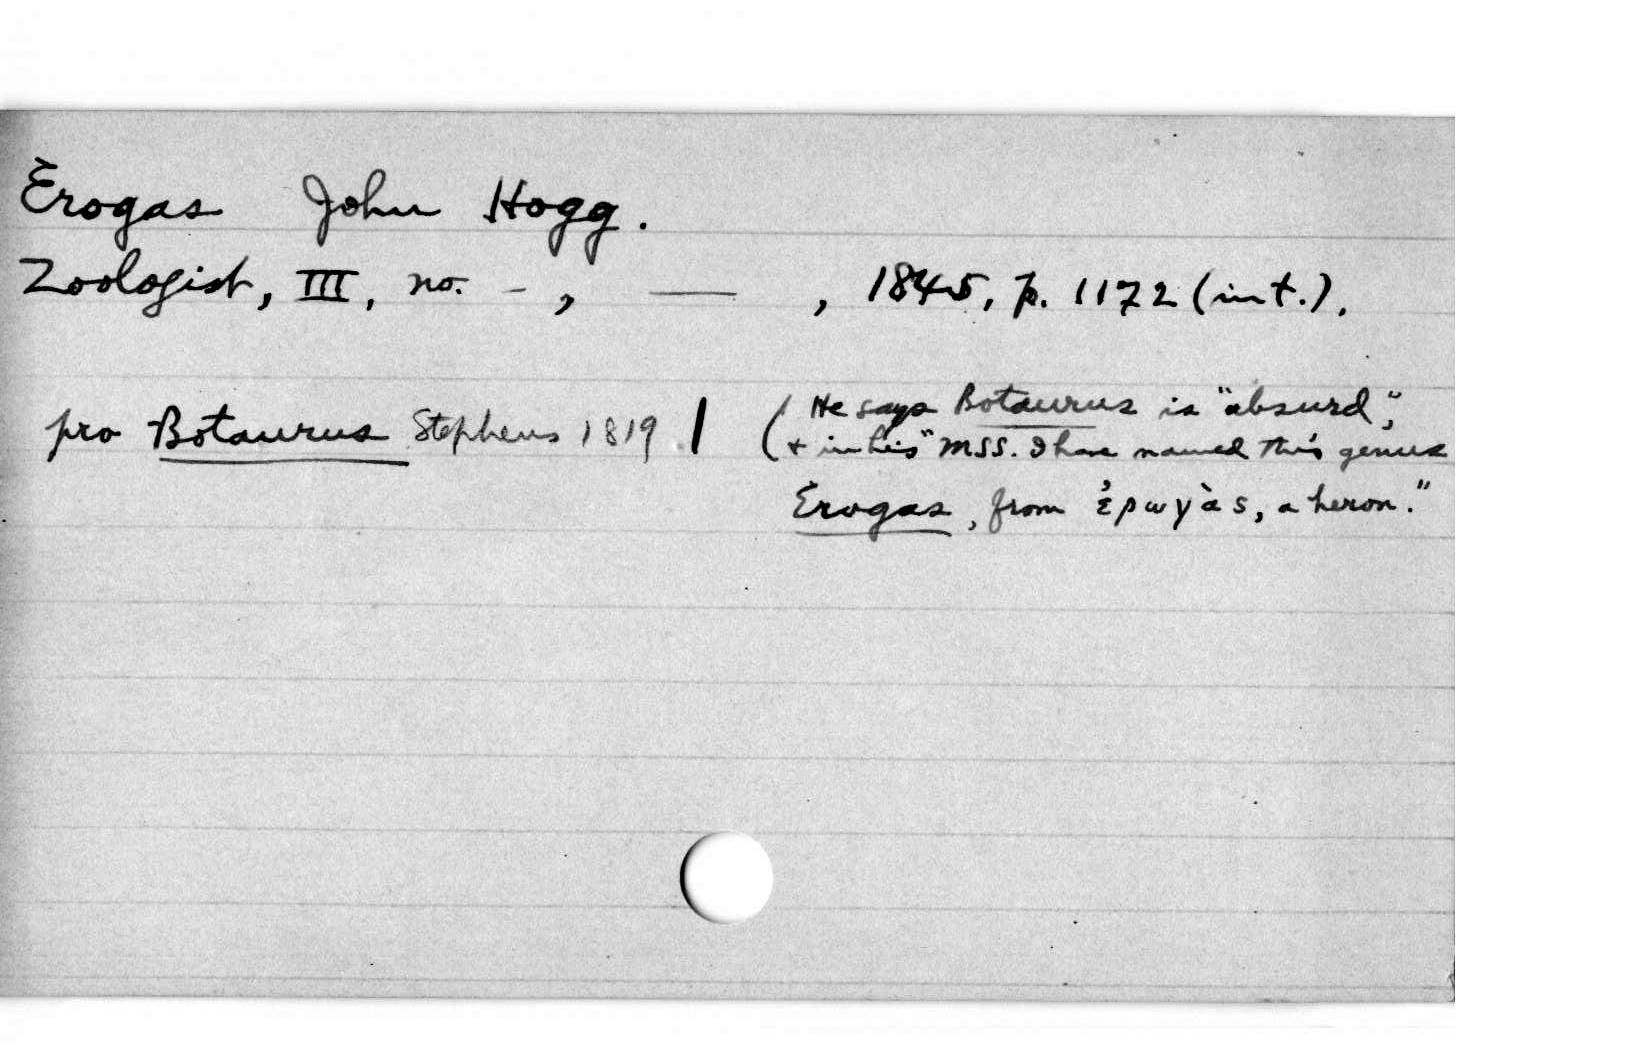 Erogas John Hogg.
Zoologist, III, no. - , — , 1845, p. 1172 (int.).
pro Botaurus Stephens 1819 | ( He says Botaurus is "absurd",
& in his "MSS. I have named this genus
Erogas, from ἐρωγὰς, a heron."